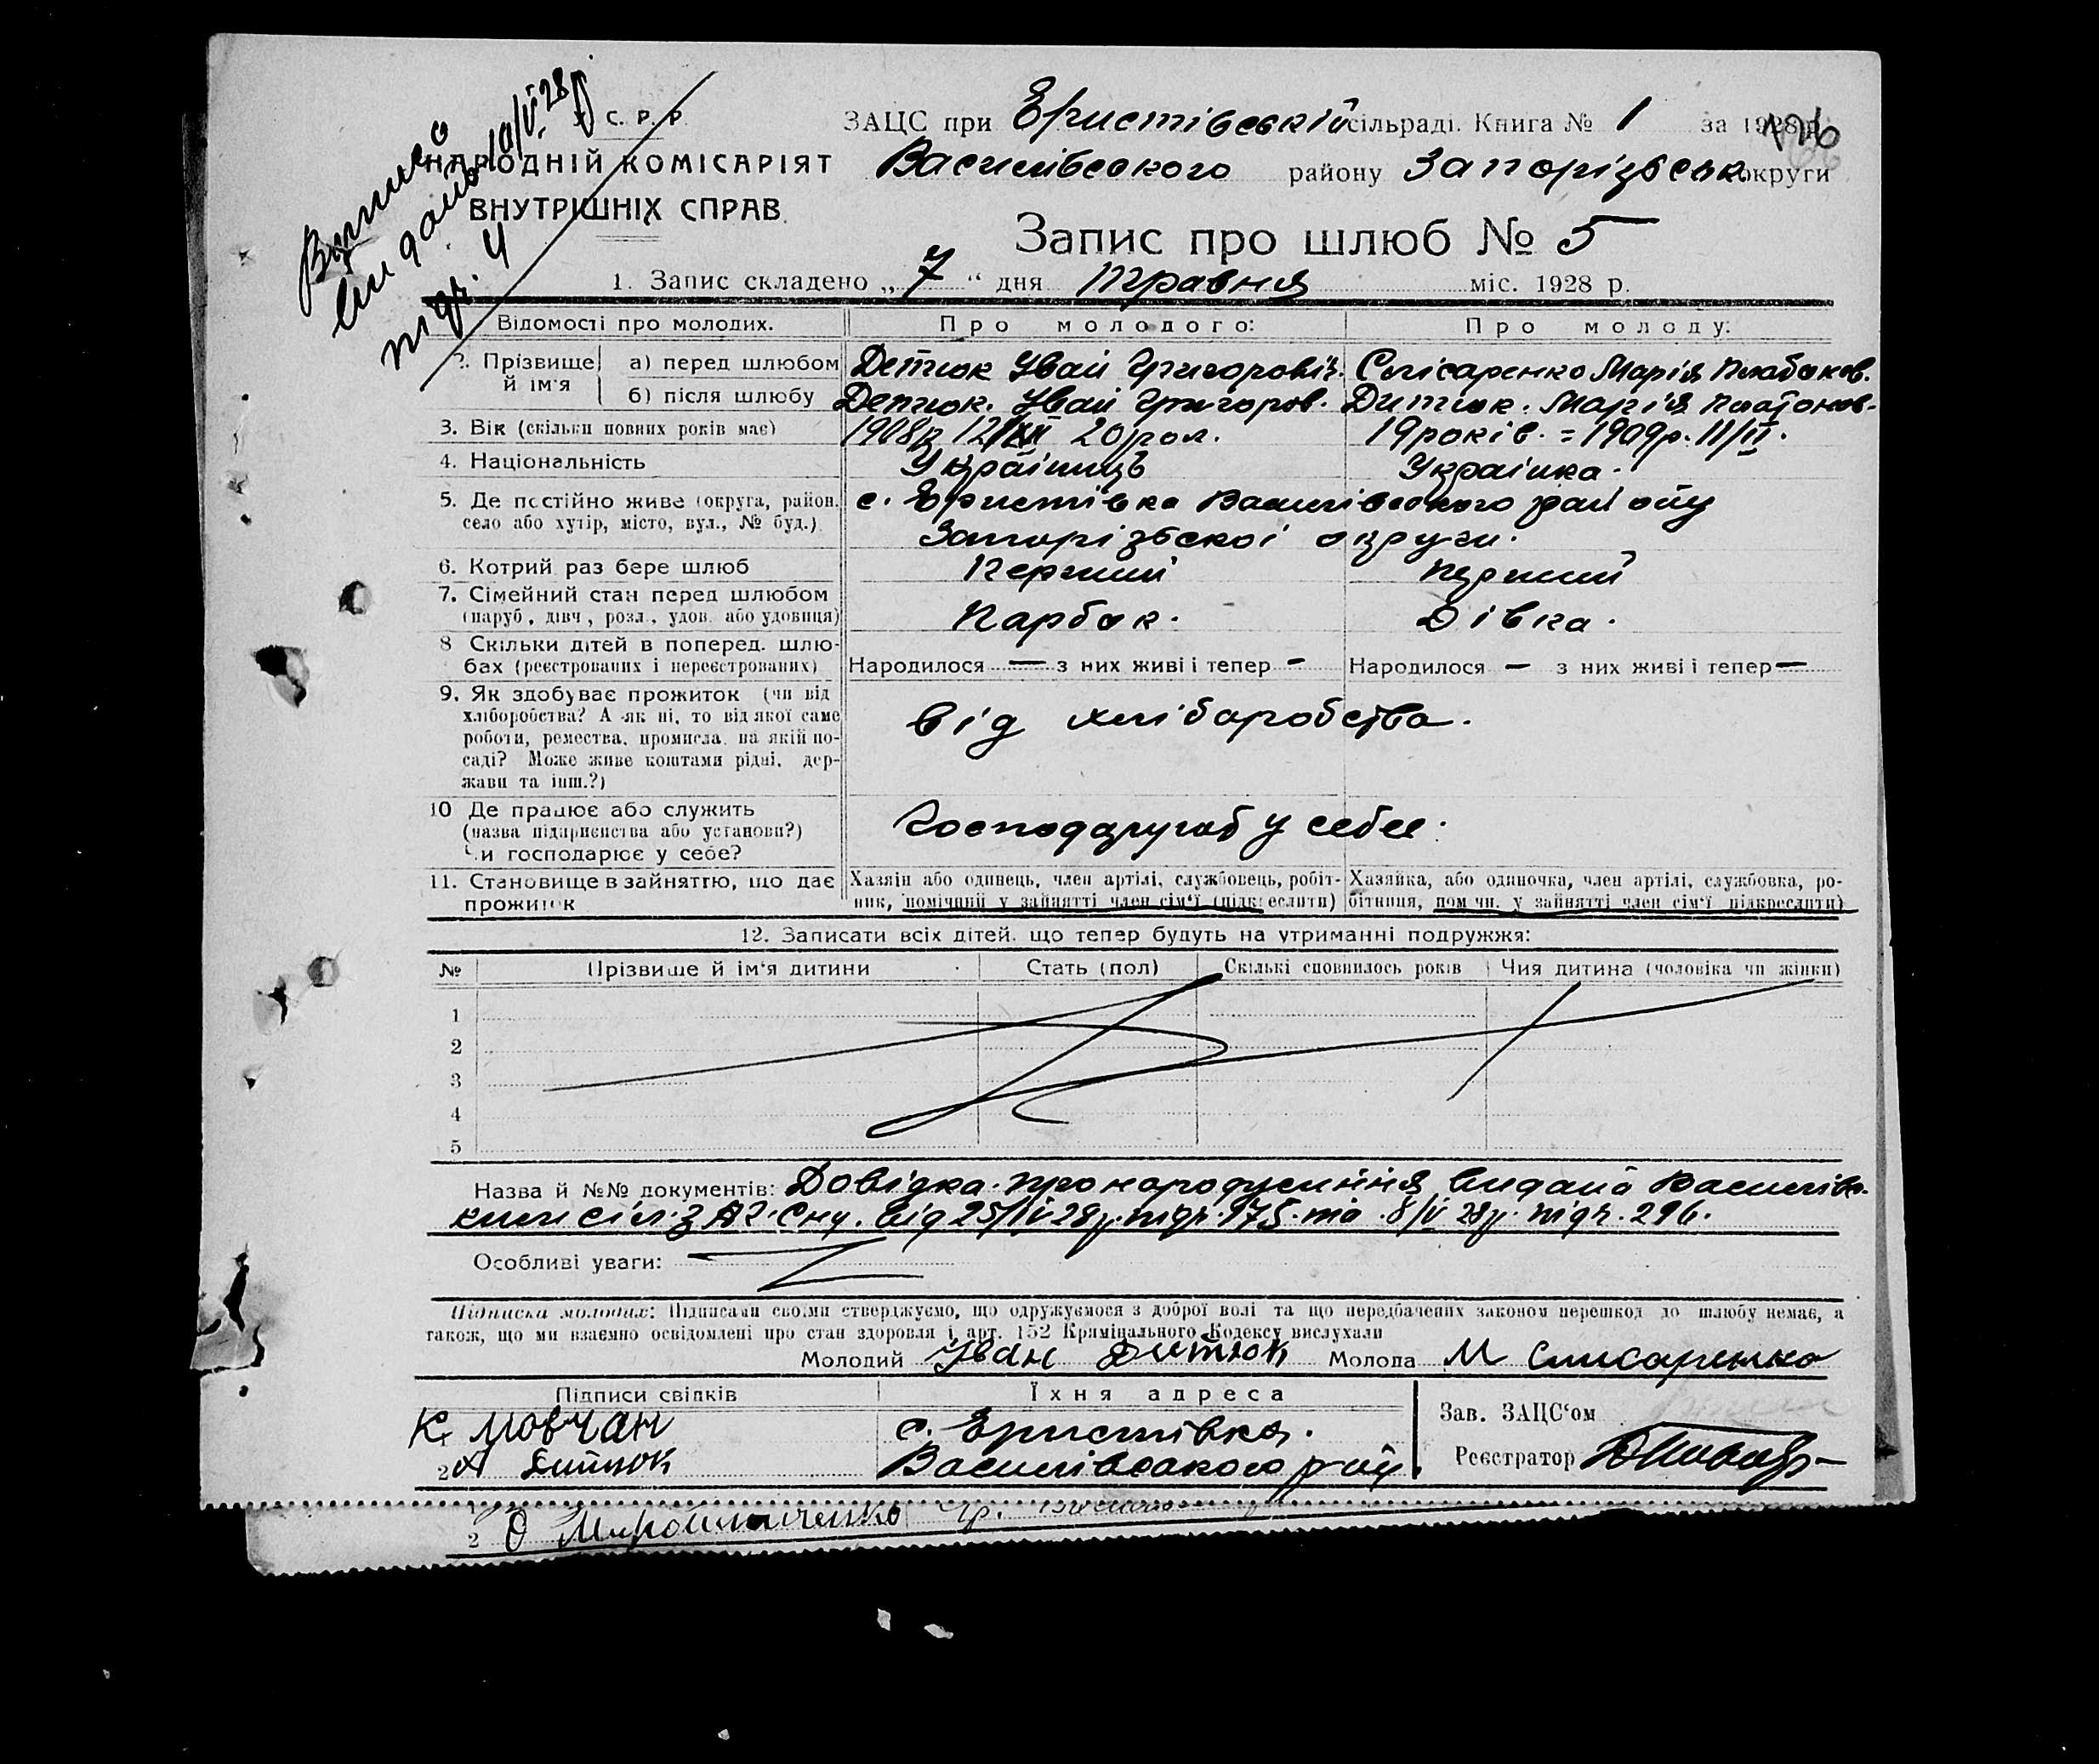 Виписа
видана 10/V 28 р
підч. 4
С. Р. Р.
НАРОДНІЙ КОМІСАРІЯТ
ВНУТРІШНІХ СПРАВ
ЗАЦС при Еристівській сільраді. Книга № 1 за 1928 р.
Василівського району Запорізьськ. округи
Запис про шлюб № 5
1. Запис складено „7“ дня Травня міс. 1928 р.
Відомості про молодих. Про молодого: Про молоду:
2. Прізвище й ім'я а) перед шлюбом Детюк Іван Григорович. Слісаренко Марія
б) після шлюбу Детюк. Іван Григоров. Дитюк. Марія Платонов.
3. Вік (скільки повних років має) 1908р 12/ 20 рол. 19 років. = 1909р. 11/II.
4. Національність Українець Українка.
5. Де постійно живе (округа, район, село або хутір, місто, вул., № буд.) с. Еристівка Василівського району
Запорізьскої округи.
6. Котрий раз бере шлюб Перший Перший
7. Сімейний стан перед шлюбом
(паруб., дівч., розл., удов. або удовиця) Парбок. Дівка.
8 Скільки дітей в поперед. шлю-
бах (реєстрованих і нереєстрованих) Народилося — з них живі і тепер - Народилося — з них живі і тепер —
9. Як здобуває прожиток (чи від
хліборобства? А як ні, то від якої саме
роботи, ремества, промисла, на якій по-
саді? Може живе коштами рідні, дер-
жави та інш.?)
від хліборобства.
10 Де працює або служить
(назва підприємства або установи?)
Чи господарює у себе?
у себе.
11. Становище в зайняттю, що дає
прожиток
Хазяїн або одинець, член артілі, службовець, робіт-
ник, помічний у зайнятті член сім'ї (підкреслити)
Хазяйка, або одиночка, член артілі, службовка, ро-
бітниця, пом чн. у зайнятті член сім'ї підкреслити)
12. Записати всіх дітей, що тепер будуть на утриманні подружжя:
№ Прізвище й ім'я дитини Стать (пол) Скількі сповнилось років Чия дитина (чоловіка чи жінки)
1
2
3
4
5
Назва й №№ документів: Довідка про народження видана Василівс.
від 25/IV 28р. підч. 175. та 8/V 28р. підч. 296.
Особливі уваги:
Підписка молодих: Підписами своїми стверджуємо, що одружуємося з доброї волі та що передбачених законом перешкод до шлюбу немає, а
також, що ми взаємно освідомлені про стан здоровля і арт. 152 Кримінального Кодексу вислухали
Молодий Іван Дитюк Молода М Слисаренко
Підписи свідків Їхня адреса
К. Мовчан с. Еристівка.
2 Дитюк Василівського р-ну.
Зав. ЗАЦС'ом
Реєстратор
2 О Мирошниченко